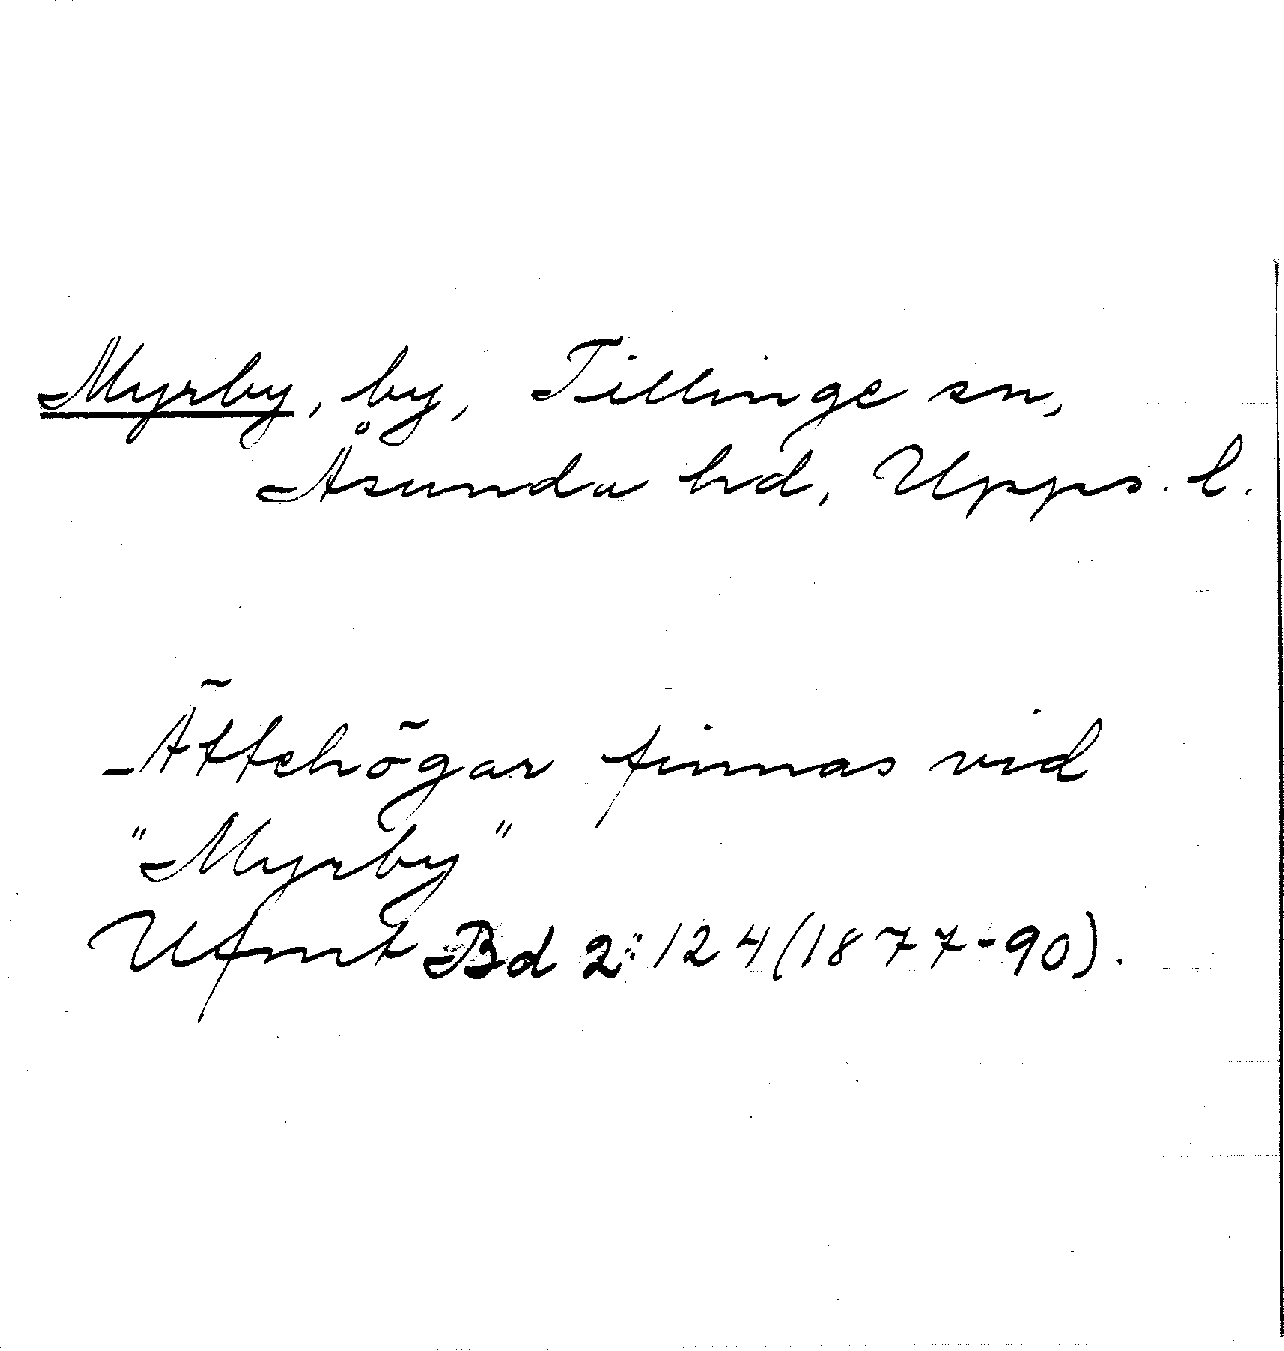 Myrby, by, Tillinge sn,
Åsunda hd, Upps. l.
Ättehögar finnas vid
"Myrby"
Ufmt Bd 2:124 (1877-90).